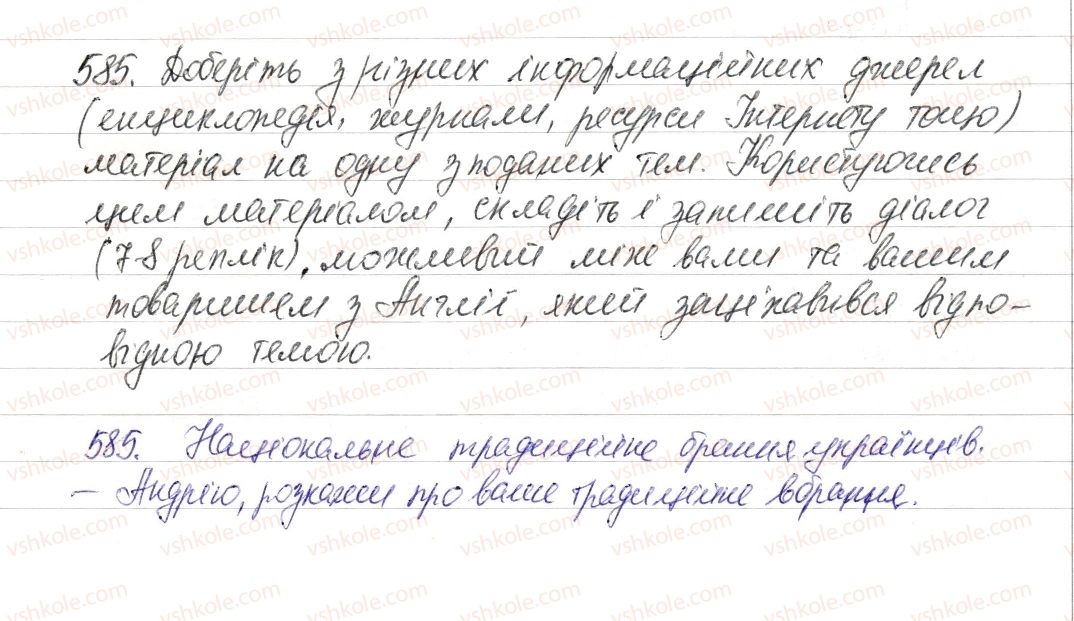 585. Доберіть з різних інформаційних джерел
(енциклопедія, журнали, ресурси Інтернету тощо)
матеріал на одну з поданих тем. Користуючись
цим матеріалом, складіть і запишіть діалог
(7-8 реплік), можливий між вами та вашим
товаришем з Англії, який зацікавився відпо-
відною темою.
585. Національне традиційне брання українців.
– Андрію, розкажи про ваше традиційне вбрання.